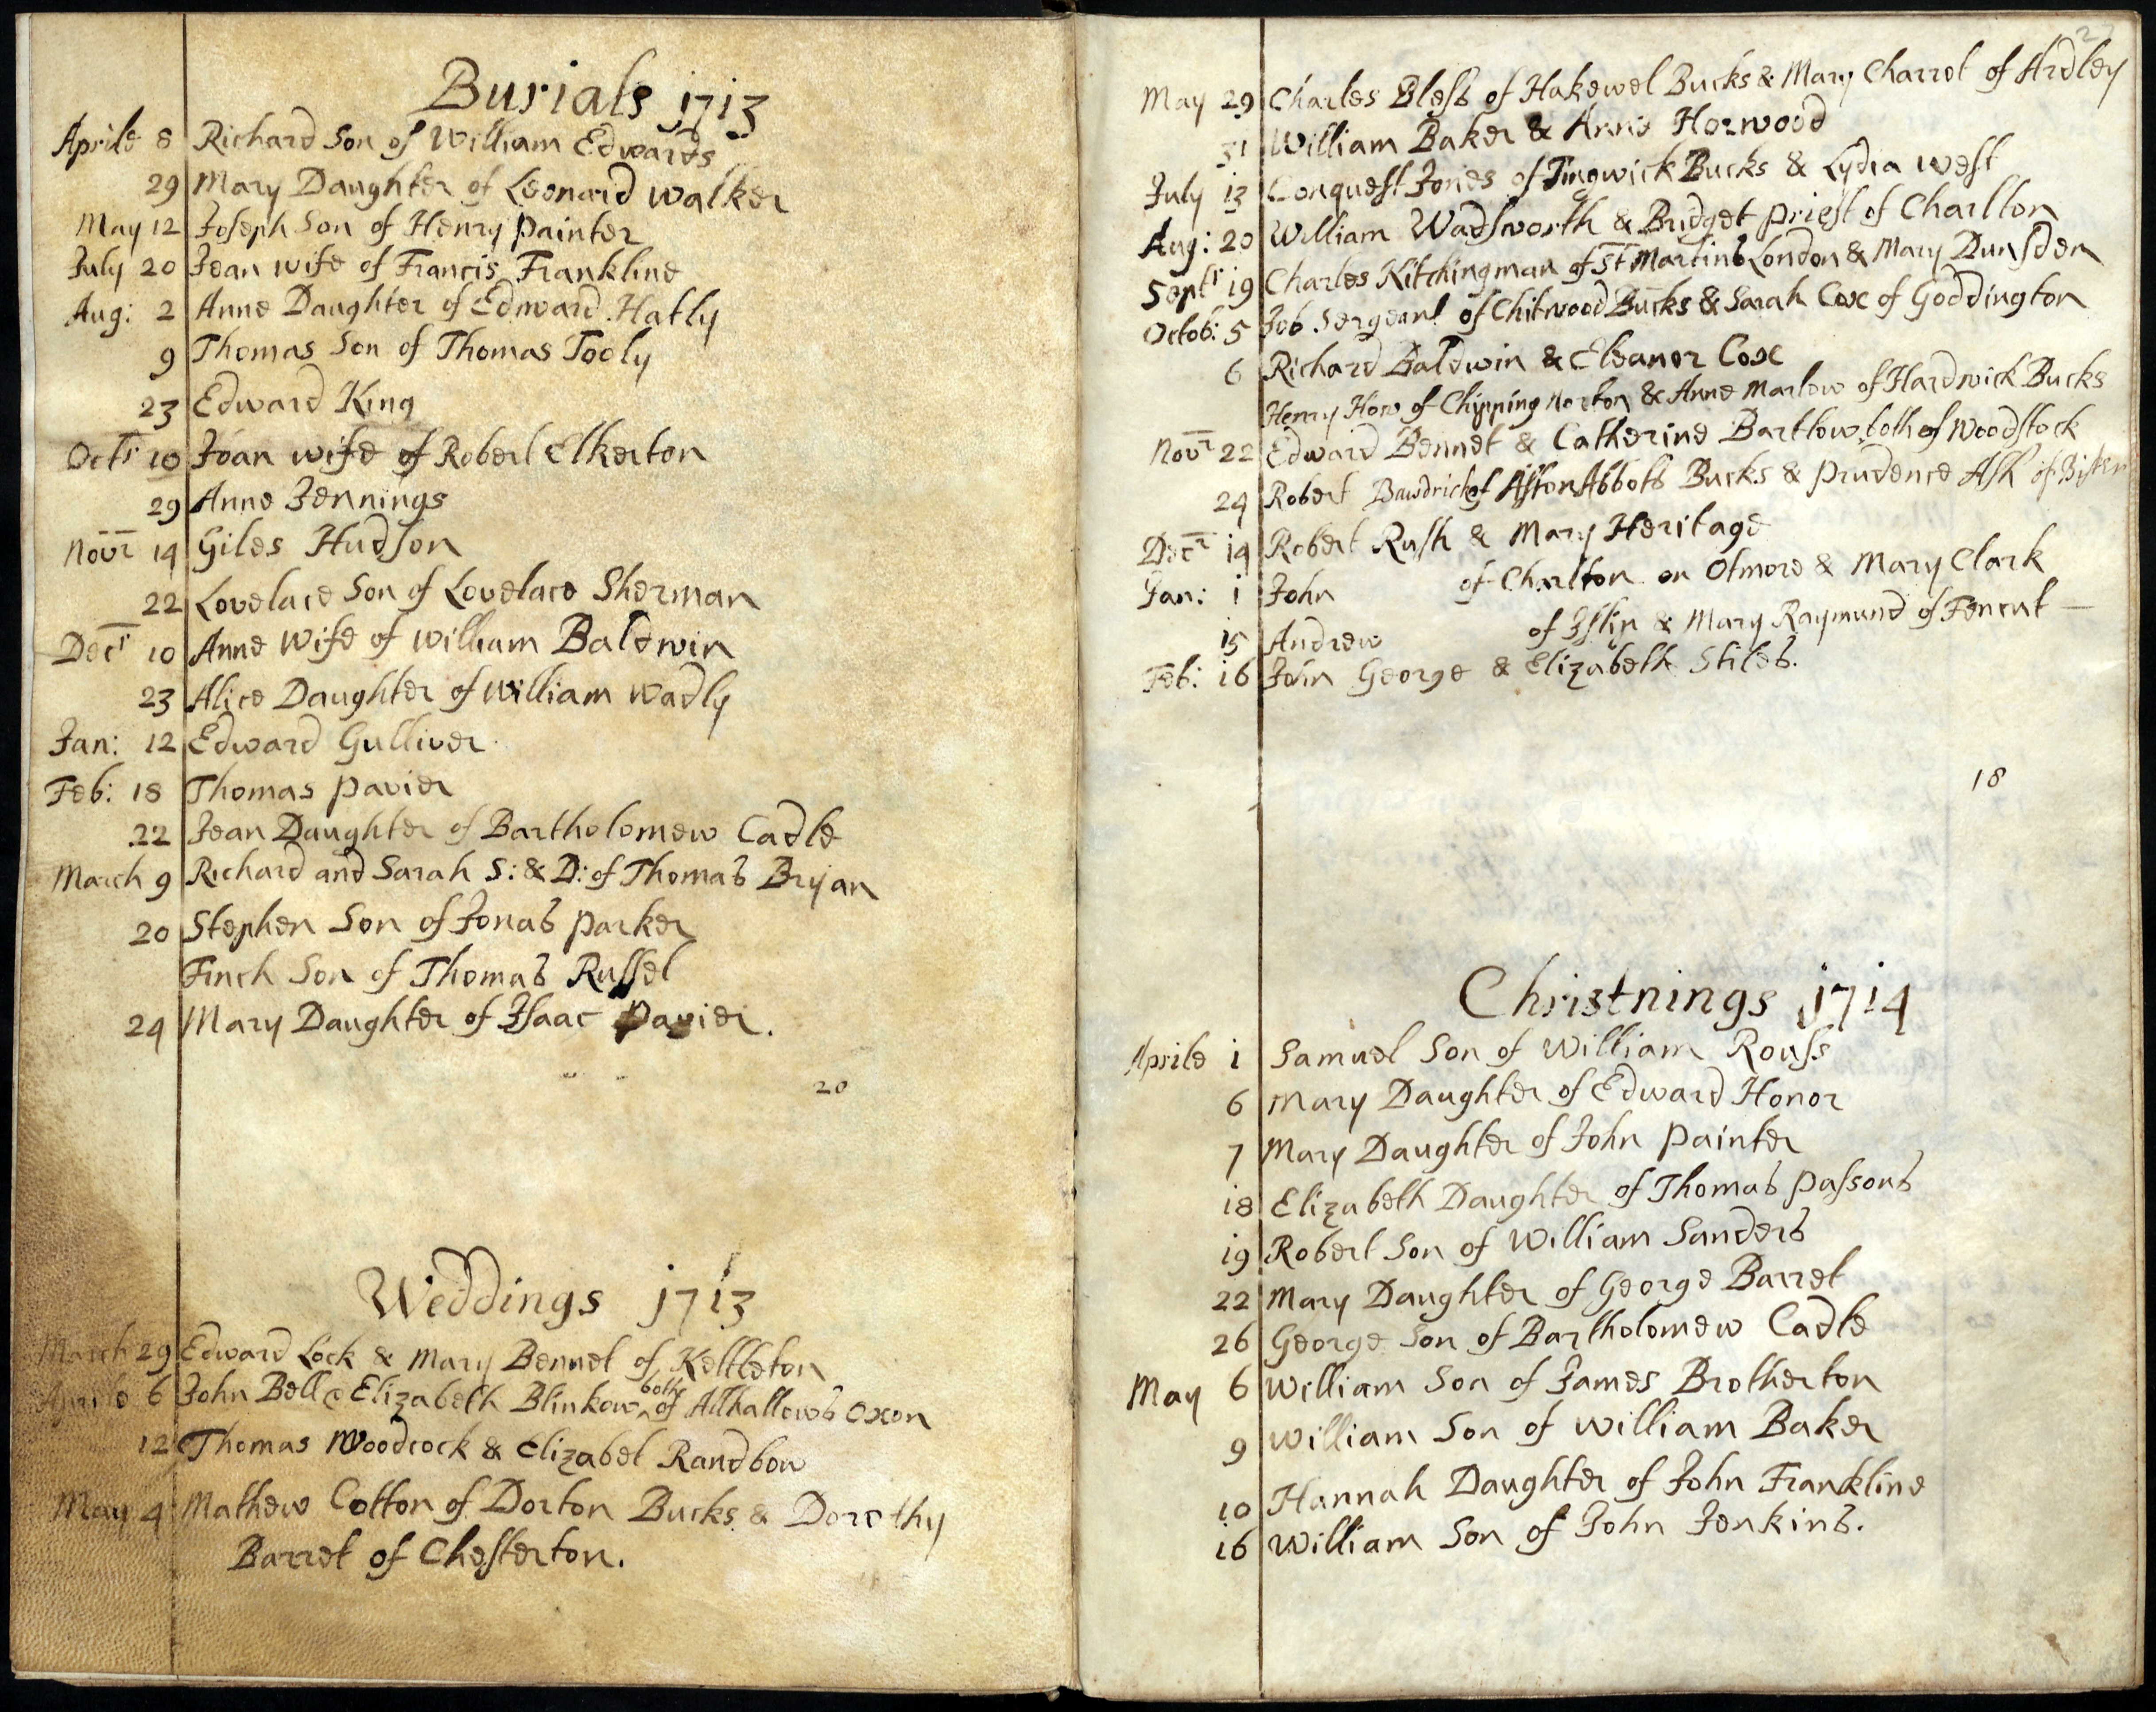 Burials 1713
Aprile 8 Richard Son of William Edwards
29 Mary Daughter of Leonard Walker
May 12 Joseph Son of Henry Painter
July 20 Jean wife of Francis Frankline
Aug: 2 Anne Daughter of Edward Hatly
9 Thomas Son of Thomas Tooly
23 Edward King
Octr 10 Joan wife of Robert Elkerton
29 Anne Jennings
Novr 14 Giles Hudson
22 Lovelace Son of Lovelace Sherman
Decr 10 Anne Wife of William Baldwin
23 Alice Daughter of William Wadly
Jan: 12 Edward Gulliver
Feb: 18 Thomas Pavier
22 Jean Daughter of Bartholomew Cadle
March 9 Richard and Sarah S: & D: of Thomas Bryan
20 Stephen Son of Jonas Parker
Finch Son of Thomas Russel
24 Mary Daughter of Isaac Pavier.
20
Weddings 1713
March 29 Edward Lock & Mary Bennet of Kettleton
Aprile 6 John Bell & Elizabeth Blinkow both of Allhallows Oxon
12 Thomas Woodcock & Elizabet Randbow
May 4 Mathew Cotton of Dorton Bucks & Dorothy
Barret of Chesterton.
27
May 29 Charles Bless of Hakewel Bucks & Mary Charrot of Ardley
31 William Baker & Anne Horwood
July 13 Conquest Jones of Tingwick Bucks & Lydia West
Aug: 20 William Wadsworth & Bridget Priest of Charlton
Septr 19 Charles Kitchingman of St Martins London & Mary Dunsden
Octob: 5 Job Sergeant of Chitwood Bucks & Sarah Cox of Goddington
6 Richard Baldwin & Eleanor Cox
Henry How of Chipping Norton & Anne Marlow of Hardwick Bucks
Novr 22 Edward Bennet & Catherine Bartlow both of Woodstock
24 Robert Bawdrick of Aston Abbots Bucks & Prudence Ash of
Decr 14 Robert Rush & Mary Heritage
Jan: 1 John of Charlton on Otmore & Mary Clark
15 Andrew of Islip & Mary Raymund of Fencut
Feb: 16 John George & Elizabeth Stiles.
18
Christnings 1714
Aprile 1 Samuel Son of William Rouss
6 Mary Daughter of Edward Honor
7 Mary Daughter of John Painter
18 Elizabeth Daughter of Thomas Passons
19 Robert Son of William Sanders
22 Mary Daughter of George Barret
26 George Son of Bartholomew Cadle
May 6 William Son of James Brotherton
9 William Son of William Baker
10 Hannah Daughter of John Frankline
16 William Son of John Jenkins.